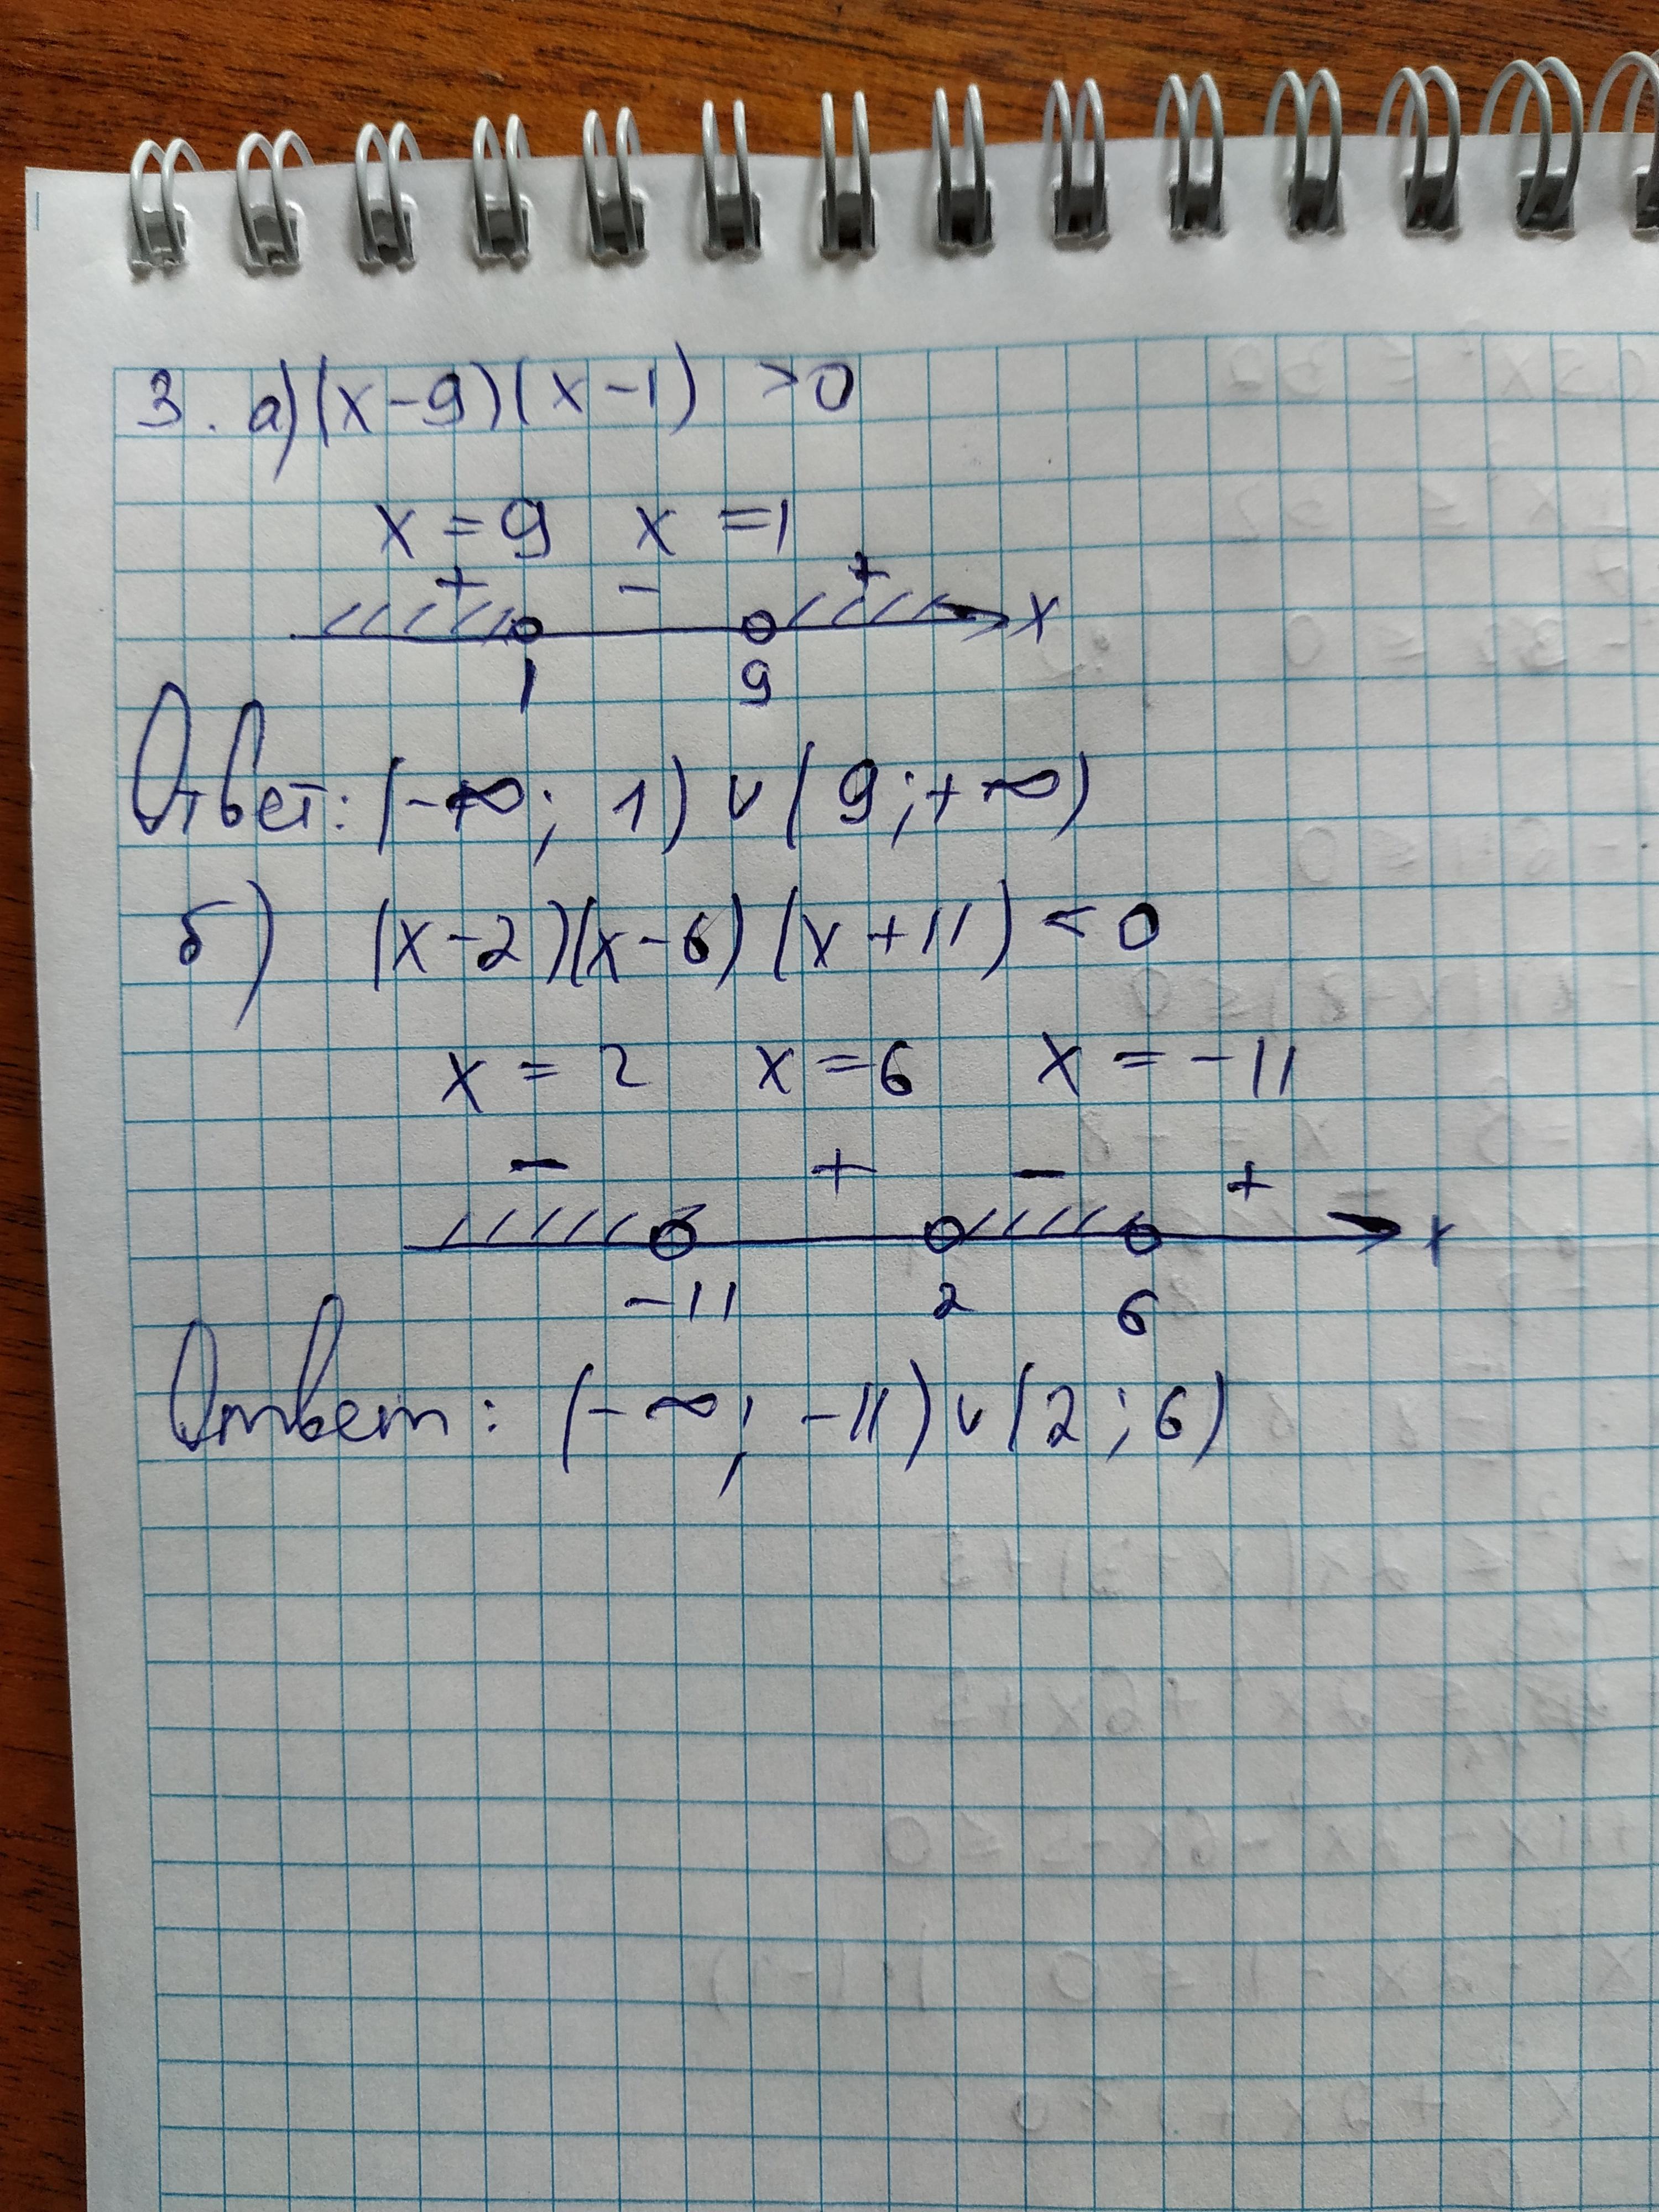 3. а) (x-9)(x-1) >0
x=9 x=1
+ - +
x
1 9
Ответ: (-∞; 1) ∪ (9;+∞)
б) (x-2)(x-6)(x+11) <0
x=2 x=6 x=-11
- + - +
x
-11 2 6
Ответ: (-∞; -11) ∪ (2; 6)